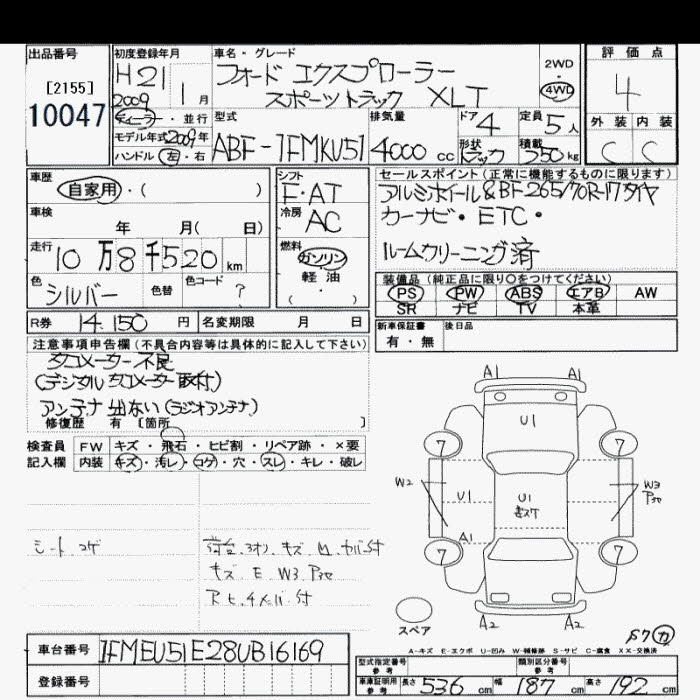 出品番号
[2155]
10047
初度登録年月
H21 1月
2009
ディーラー・並行
モデル年式 2009年
ハンドル 左・右
車名・グレード
フォード エクスプローラー
スポーツトラック XLT
2WD
4WD
型式
ABF-1FMKU51
排気量
4000 cc
ドア
4
形状
トラック
定員
5人
積載
350kg
評価点
4
外装 内装
C C
車歴
自家用・( )
車検
年 月( 日)
走行
10万8千520km
色
シルバー
色替
色コード
?
R券 14,150円 名変期限 月 日
シフト
F・AT
冷房
AC
燃料
ガソリン
軽油
( )
セールスポイント(正常に機能するものに限ります)
アルミホイール&BF 265/70R-17タイヤ
カーナビ・ETC・
ルームクリーニング済
装備品(純正品に限り○をつけてください)
PS PW ABS エアB AW
SR ナビ TV 本革
新車保証書
有・無
後日品
注意事項申告欄(不具合内容等は具体的に記入して下さい)
タコメーター不良
(デジタルタコメーター取付)
アンテナ出ない(ラジオアンテナ)
修復歴 有 [箇所 ]
検査員
記入欄
FW キズ・飛石・ヒビ割・リペア跡・×要
内装 キズ・汚レ・コゲ・穴・スレ・キレ・破レ
シート コゲ
キズ E W3 P30
A1 A1
U1
7 7
W2 U1 U1 W3
P30
A1
7 7
A2 A2
スペア
S7 カ
A-キズ E-エクボ U-凹み W-補修跡 S-サビ C-腐食 XX-交換済
車台番号 1FMEU51E28UB16169
登録番号
型式指定番号
参考
類別区分番号
参考
車庫証明用
参考
長さ 536 cm 幅 187 cm 高さ 192 cm